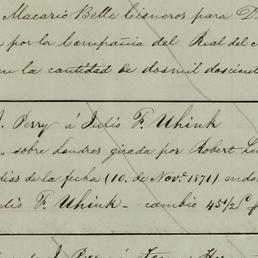 Macario Belle Cisneros para D.
por la Compañia del Real del
en la cantidad de dosmil doscient
J. Perry á Julio F. Uhink
sobre Londres girada por Robert
dias de la fecha (10. de Novr. 1871) endo
Julio F. Uhink - cambio 45 1/2